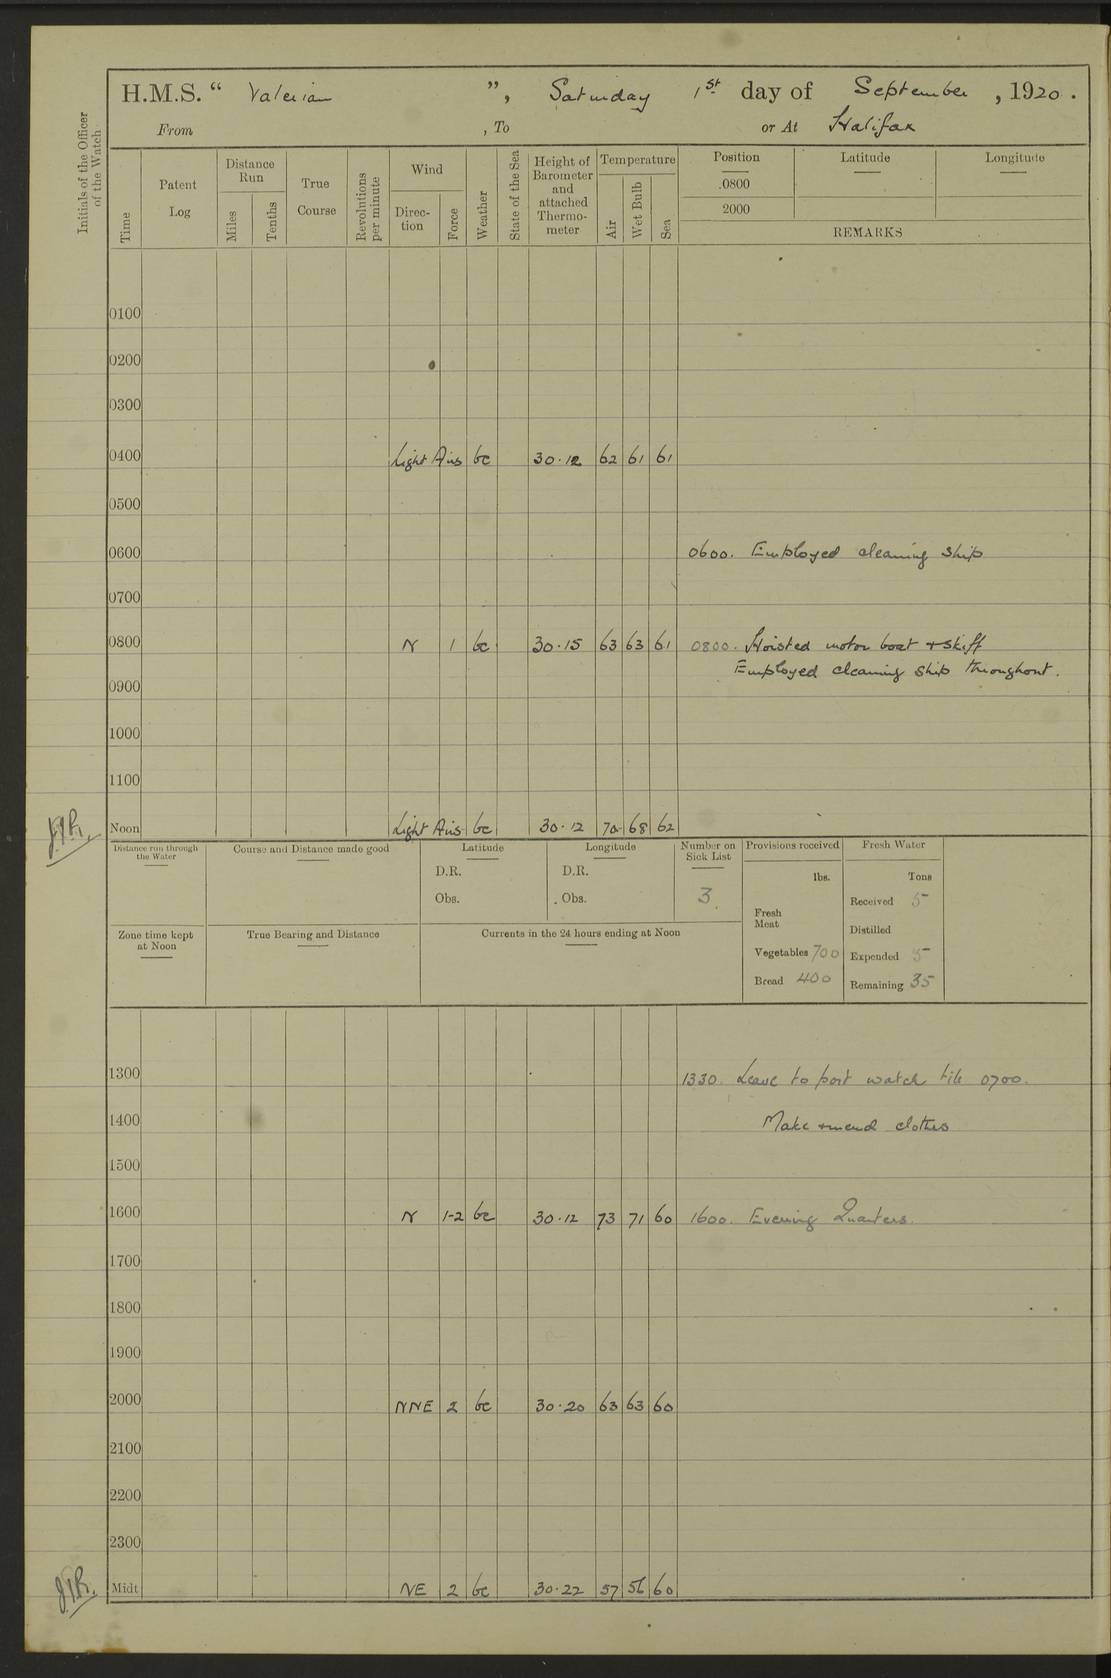 H.M.S. “ Valerian ”, Saturday 1st day of September, 1920.
From , To or At Halifax
Initials of the Officer of the Watch
Time
Patent Log
Distance Run
Miles
Tenths
True Course
Revolutions per minute
Wind
Direc-tion
Force
Weather
State of the Sea
Height of Barometer and attached Thermo-meter
Temperature
Air
Wet Bulb
Sea
Position Latitude Longitude
.0800
2000
REMARKS
0100
0200
0300
0400 Light Airs bc 30.12 62 61 61
0500
0600 0600. Employed cleaning ship
0700
0800 N 1 bc 30.15 63 63 61 0800. Hoisted motor boat + skiff
Employed cleaning ship throughout.
0900
1000
1100
Noon Light Airs bc 30.12 70 68 62
Distance run through the Water
Course and Distance made good
Latitude
D.R.
Obs.
Longitude
D.R.
Obs.
Number on Sick List
3
Provisions received
lbs.
Fresh Meat
Vegetables 700
Bread 400
Fresh Water
Tons
Received 5
Distilled
Expended 5
Remaining 35
Zone time kept at Noon
True Bearing and Distance
Currents in the 24 hours ending at Noon
1300 1330. Leave to port watch till 0700.
1400 Make + mend clothes
1500
1600 N 1-2 bc 30.12 73 71 60 1600. Evening Quarters.
1700
1800
1900
2000 NNE 2 bc 30.20 63 63 60
2100
2200
2300
Midt NE 2 bc 30.22 57 56 60